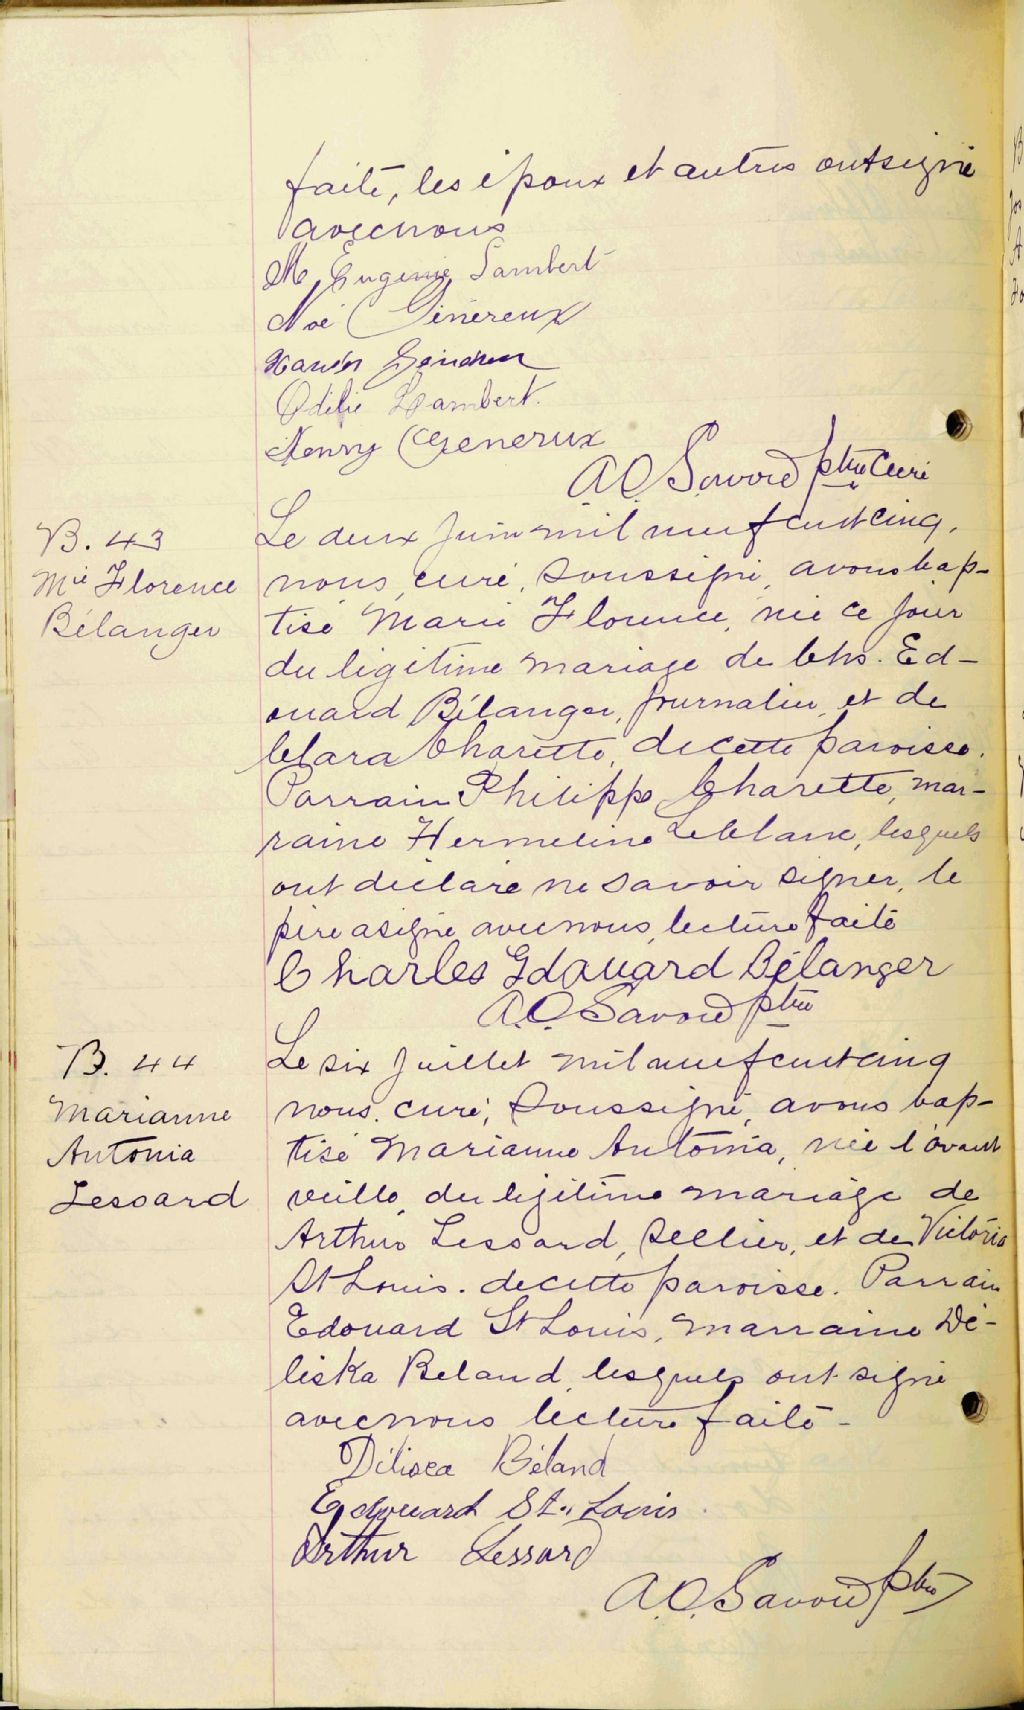 faite, les époux et autres ont signé
avec nous
M. Eugenie Lambert
Noé Généreux
Odélie Lambert.
Henry Genereux
A. O. Savoie ptre Curé
B. 43
Mie Florence
Bélanger
Le deux Juin mil neuf cent cinq,
nous, curé, soussigné, avons bap-
tisé Marie Florence, née ce jour
du légitime mariage de Chs. Ed-
ouard Bélanger, journalier, et de
Clara Charette, de cette paroisse.
Parrain Philippe Charette, mar-
raine Hermeline Leblanc, lesquels
ont déclaré ne savoir signer, le
père a signé avec nous, lecture faite
Charles Edouard Bélanger
A. O. Savoie ptre
B. 44
Marianne
Antonia
Lessard
Le six Juillet mil neuf cent cinq
nous, curé, soussigné, avons bap-
tisé Marianne Antonia, née l'avant
veille, du légitime mariage de
Arthur Lessard, sellier, et de Victoria
St Louis. de cette paroisse. Parrain
Edouard St Louis, marraine Dé-
liska Beland, lesquels ont signé
avec nous lecture faite -
Délisca Béland
Edouard St. Louis.
Arthur Lessard
A. O. Savoie ptre